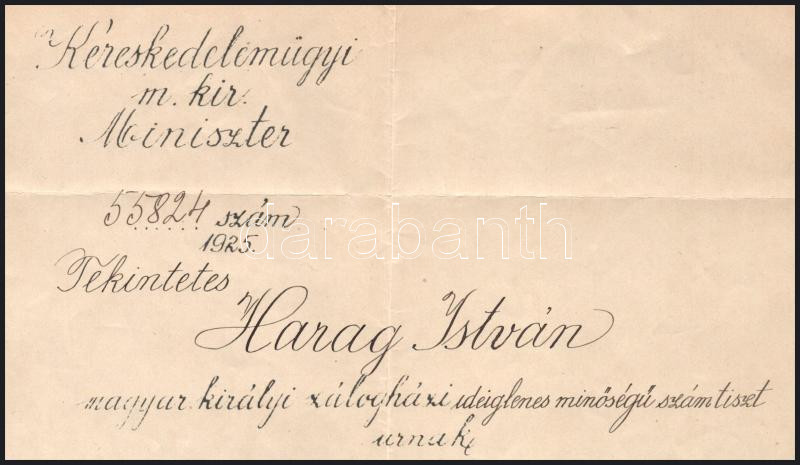 Kereskedelemügyi
m. kir.
Miniszter
55824 szám
1925.
darabanth
Tekintetes
Harag István
magyar királyi zálogházi ideiglenes minőségű számtiszt
urnak